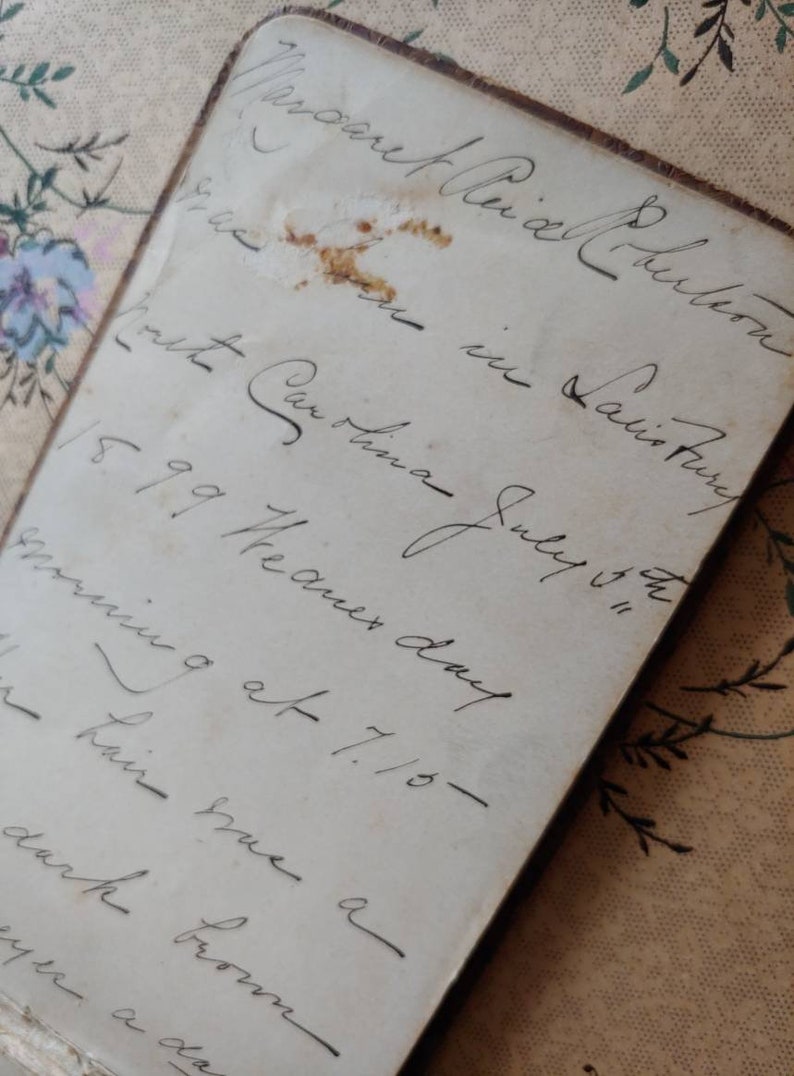 Margaret Reid Robertson
was born in Salisbury
North Carolina July 5th
1899 Wednesday
morning at 7.15 –
Her hair was a
dark brown
eyes a da